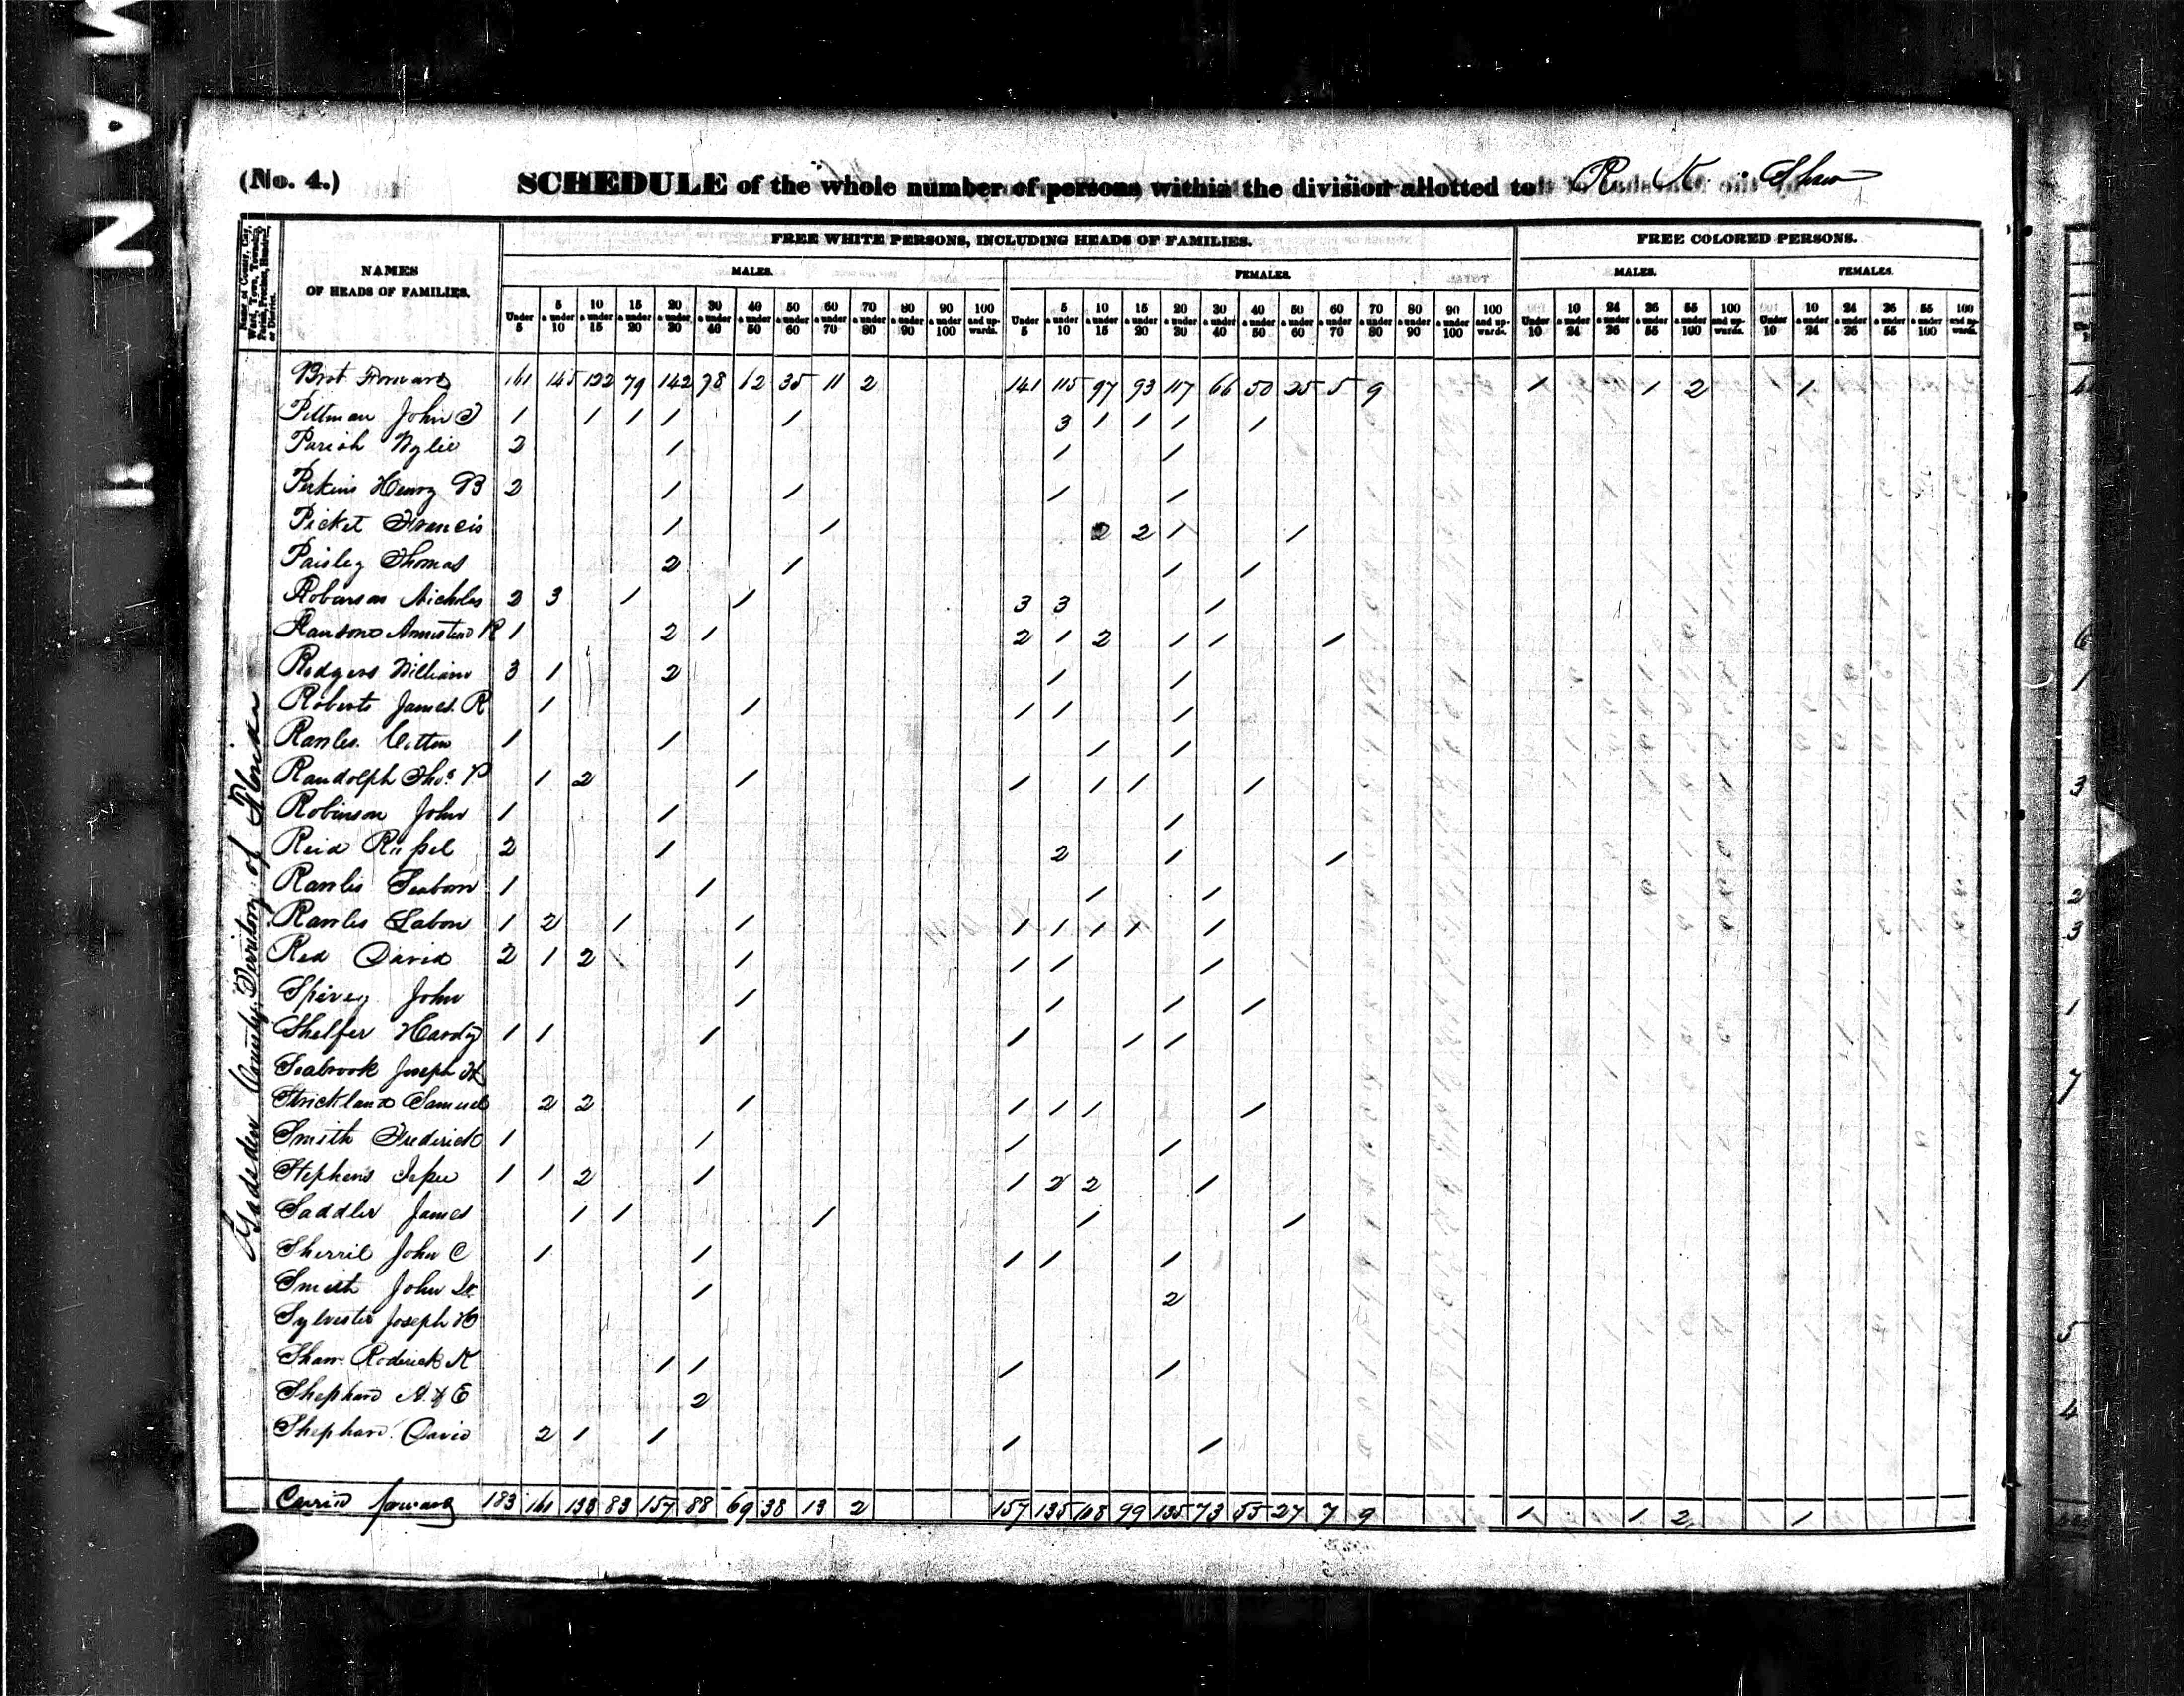 (No. 4.) SCHEDULE of the whole number of persons within the division allotted to R. K. Shaw
Name of County, City, Ward, Town, Township, Parish, Precinct, Hundred, or District.
NAMES OF HEADS OF FAMILIES.
FREE WHITE PERSONS, INCLUDING HEADS OF FAMILIES.
FREE COLORED PERSONS.
MALES. FEMALES. MALES. FEMALES.
Under 5 | 5 & under 10 | 10 & under 15 | 15 & under 20 | 20 & under 30 | 30 & under 40 | 40 & under 50 | 50 & under 60 | 60 & under 70 | 70 & under 80 | 80 & under 90 | 90 & under 100 | 100 and upwards. | Under 5 | 5 & under 10 | 10 & under 15 | 15 & under 20 | 20 & under 30 | 30 & under 40 | 40 & under 50 | 50 & under 60 | 60 & under 70 | 70 & under 80 | 80 & under 90 | 90 & under 100 | 100 and upwards. | Under 10 | 10 & under 24 | 24 & under 36 | 36 & under 55 | 55 & under 100 | 100 and upwards. | Under 10 | 10 & under 24 | 24 & under 36 | 36 & under 55 | 55 & under 100 | 100 and upwards.
Gadsden County, Territory of Florida
Brot Forward 161 145 122 79 142 78 62 35 11 2 141 115 97 93 117 66 50 25 5 9 1 1 2 1
Pittman John J 1 1 1 1 1 3 1 1 1 1
Parish Wylie 2 1 1 1
Perkins Henry B 2 1 1 1 1
Picket Francis 1 1 2 2 1 1
Paisley Thomas 2 1 1 1
Robinson Nicholas 2 3 1 1 3 3 1
Ransone Armistead R 1 2 1 2 1 2 1 1 1
Rodgers William 3 1 2 1 1
Roberts James R 1 1 1 1 1
Rawles Cotten 1 1 1 1
Randolph Thos. P 1 2 1 1 1 1 1
Robinson John 1 1 1
Reid Russel 2 1 2 1 1
Rawles Seaborn 1 1 1 1
Rawles Labon 1 2 1 1 1 1 1 1 1
Red David 2 1 2 1 1 1 1
Spivey John 1 1 1 1
Shelfer Hardy 1 1 1 1 1 1
Seabrook Joseph H
Strickland Samuel 2 2 1 1 1 1 1
Smith Frederick 1 1 1 1
Stephens Jesse 1 1 2 1 1 2 2 1
Saddler James 1 1 1 1 1
Sherril John C 1 1 1 1 1
Smith John 1 2
Sylvester Joseph H
Shaw Roderick K 1 1 1 1
Shephard A. & E 2
Shephard David 2 1 1 1 1
Carried forward 183 161 138 83 157 88 69 38 13 2 157 135 108 99 135 73 55 27 7 9 1 1 2 1
6
1
3
2
3
1
7
5
4